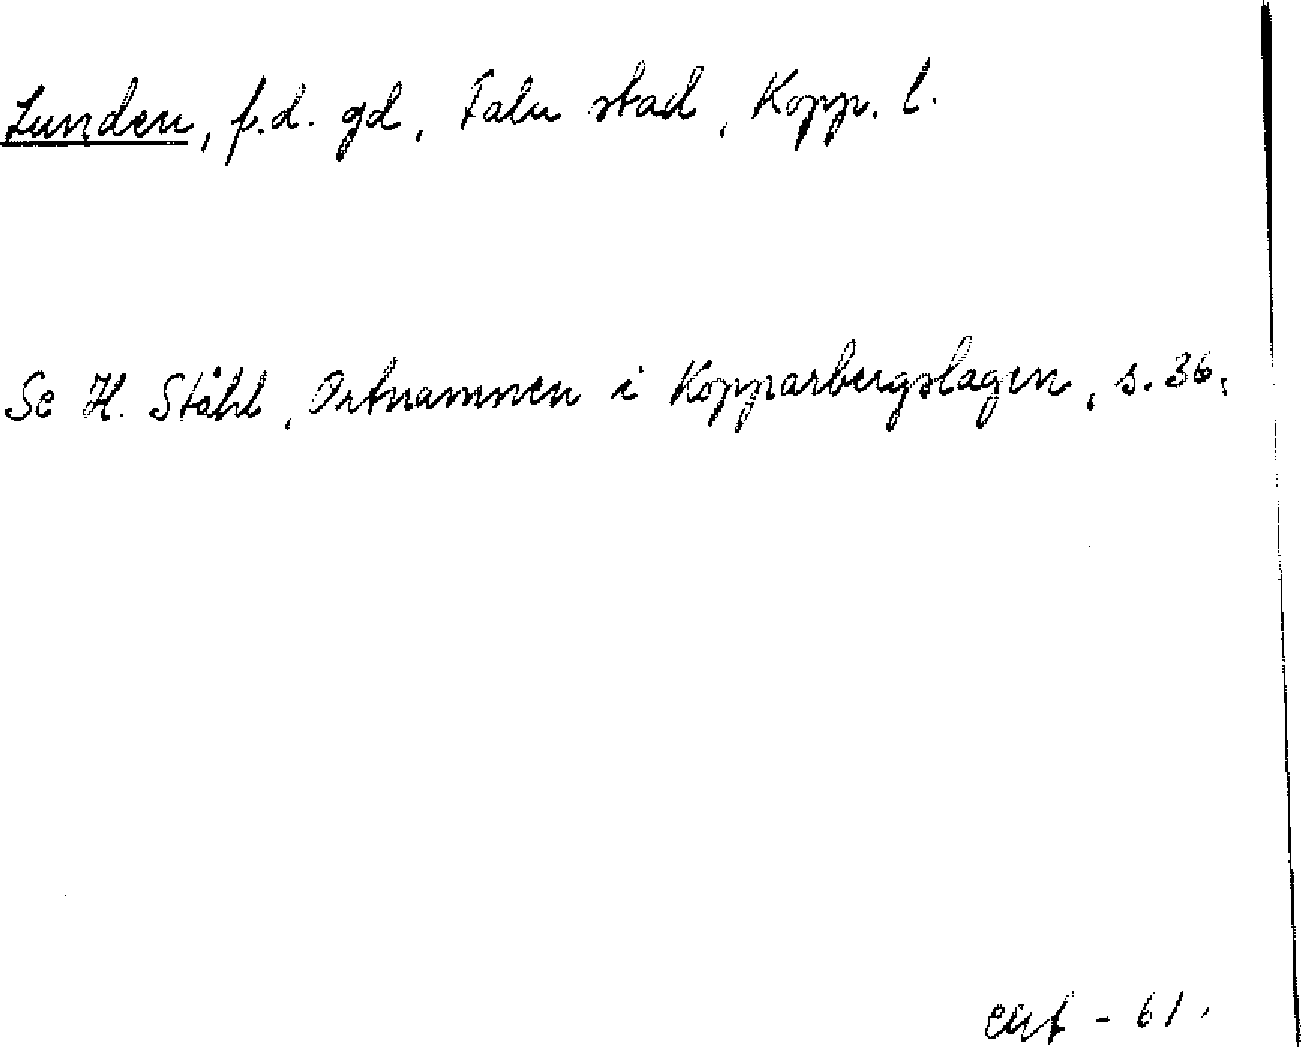 Lunden, f.d. gd, Falu stad, Kopp. l.
Se H. Ståhl, Ortnamnen i Kopparbergslagen, s. 36.
- 61.